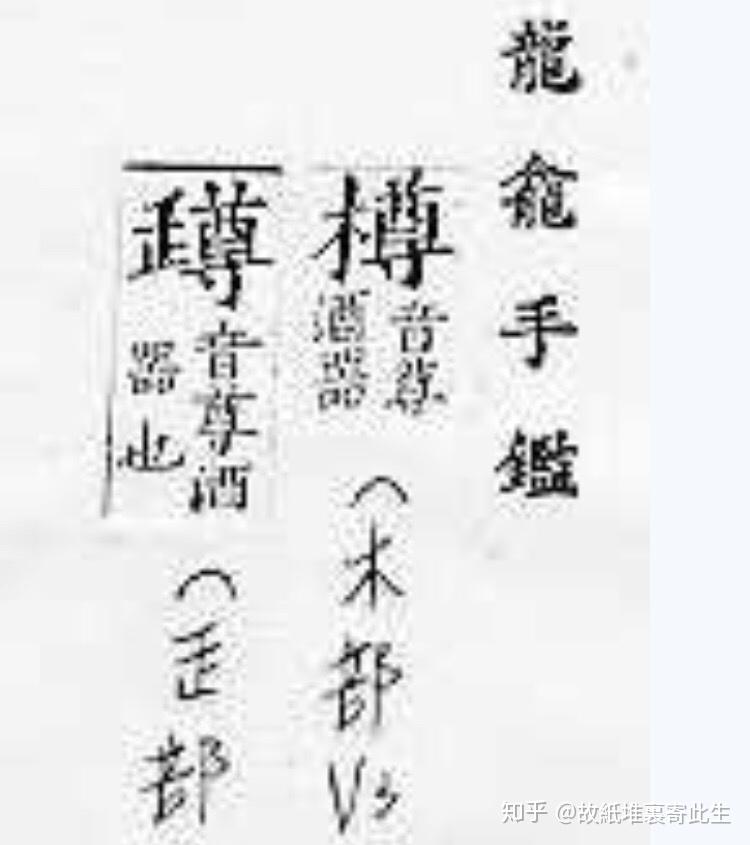 龍龕手鑑
樽
音尊
酒器
(木部 Vs
音尊酒
器也
(疋部
知乎 @故紙堆裏寄此生